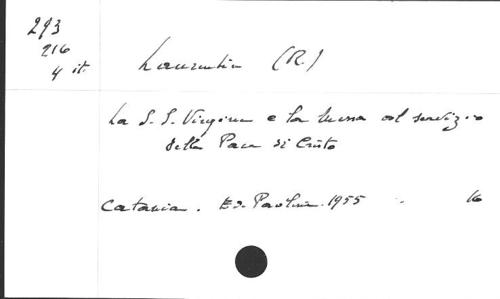 293
216
4 it.
Laurentin (R.)
La S. S. Vergine e la Messa al servizio
della Pace di Cristo
Catania. Ed. Paoline. 1955 16